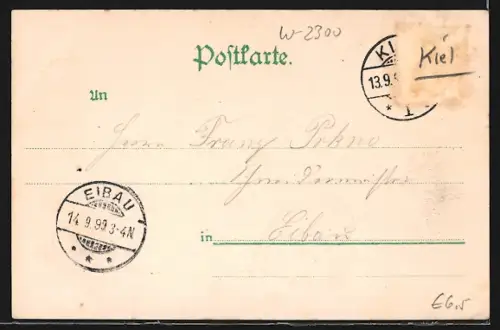 W-2300
Postkarte.
KI
Kiel
13.9.
* 1 *
An
Herrn Franz
Schneidermeister
in Eibau
EIBAU
14.9.99 3-4N
* * *
E6,5